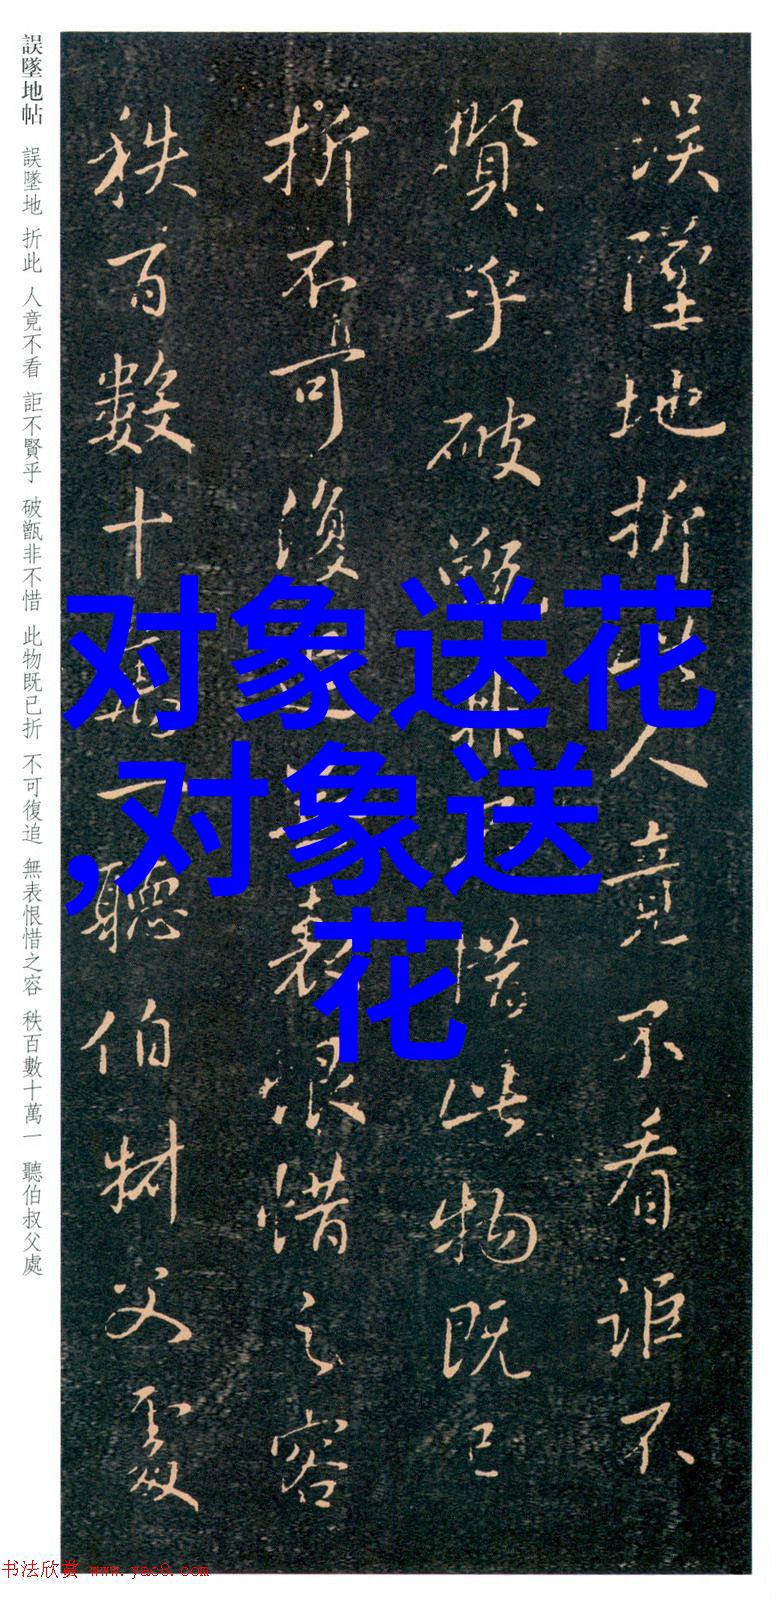 誤墜地帖 誤墜地 折此 人竟不看 詎不賢乎 破甑非不惜 此物既已折 不可復追 無表恨惜之容 秩百數十萬一 聽伯叔父處
误墜地折此人竟不看詎不
賢乎破甑非不惜此物既已
折不可復追無表恨惜之容
秩百數十萬一聽伯叔父處
对象送花
,对象送
花
书法欣赏 www.yac8.com